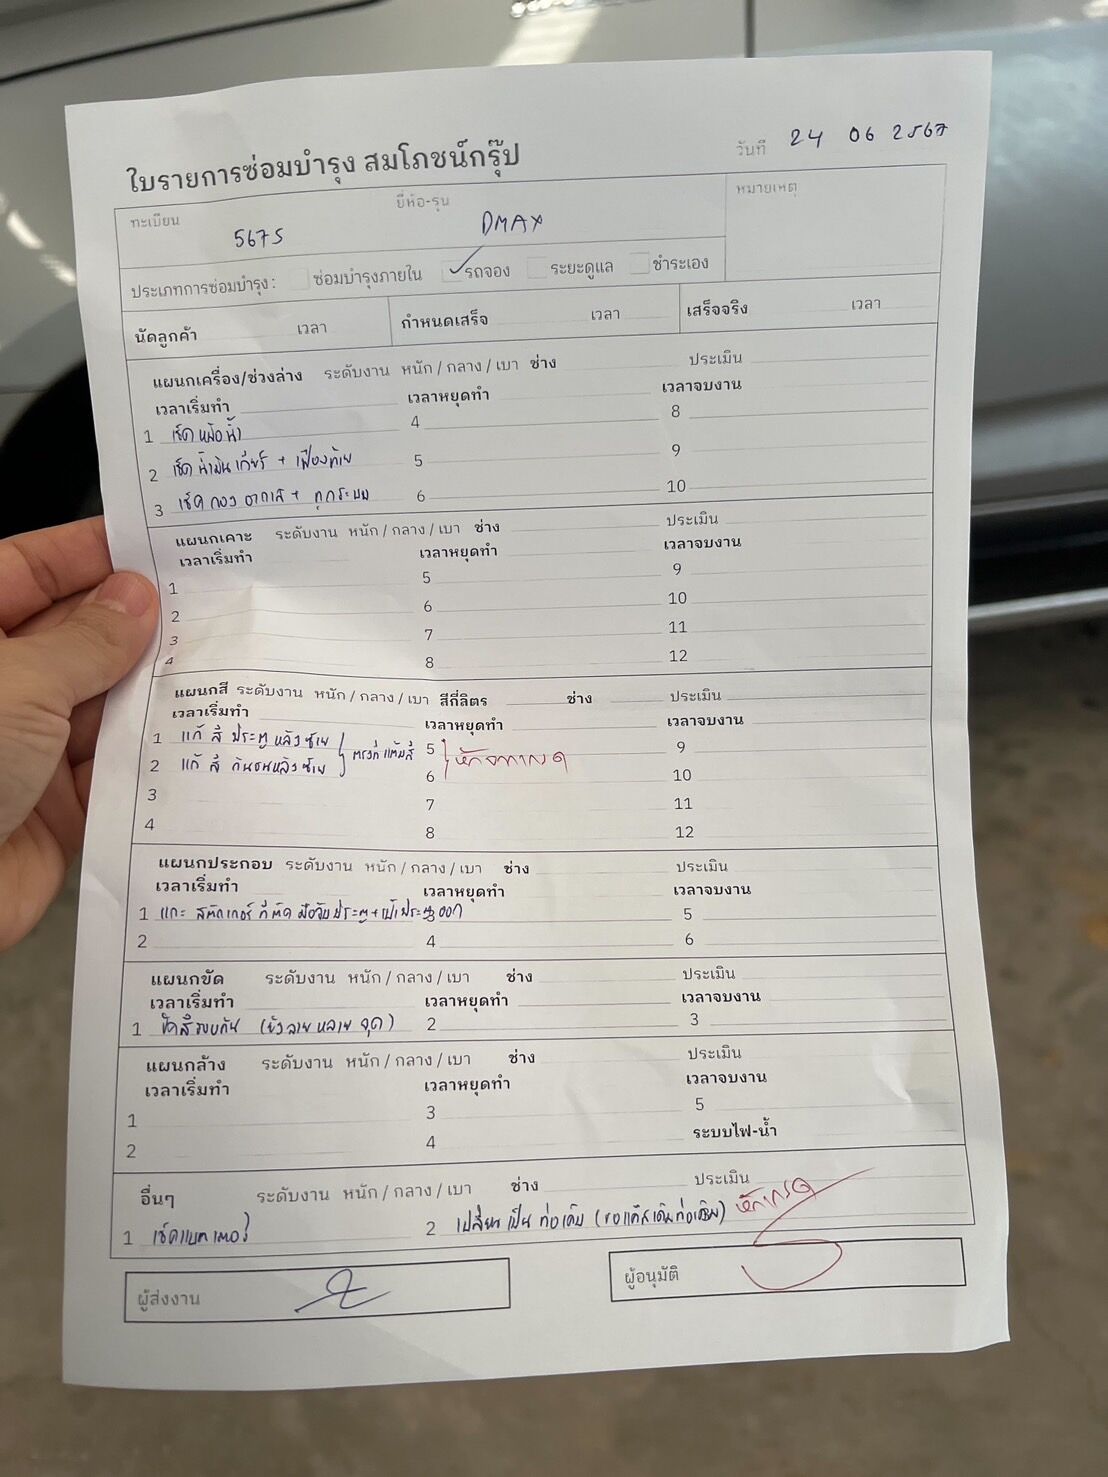 ใบรายการซ่อมบำรุง สมโภชน์กรุ๊ป
วันที่ 24 06 2567
ทะเบียน 5675 ยี่ห้อ-รุ่น DMAX หมายเหตุ
ประเภทการซ่อมบำรุง : ซ่อมบำรุงภายใน รถจอง ระยะดูแล ชำระเอง
นัดลูกค้า เวลา กำหนดเสร็จ เวลา เสร็จจริง เวลา
แผนกเครื่อง/ช่วงล่าง ระดับงาน หนัก / กลาง / เบา ช่าง ประเมิน
เวลาเริ่มทำ เวลาหยุดทำ เวลาจบงาน
1 เช็ค หม้อน้ำ 4 8
2 เช็ค น้ำมันเกียร์ + เฟืองท้าย 5 9
3 เช็ค กรอง อากาศ + ทุกระบบ 6 10
แผนกเคาะ ระดับงาน หนัก / กลาง / เบา ช่าง ประเมิน
เวลาเริ่มทำ เวลาหยุดทำ เวลาจบงาน
1 5 9
2 6 10
3 7 11
4 8 12
แผนกสี ระดับงาน หนัก / กลาง / เบา สีกี่ลิตร ช่าง ประเมิน
เวลาเริ่มทำ เวลาหยุดทำ เวลาจบงาน
1 แก้ สี ประตู หลังซ้าย ตรงที่แต้มสี 5 9
2 แก้ สี กันชนหลังซ้าย 6 10
3 7 11
4 8 12
แผนกประกอบ ระดับงาน หนัก / กลาง / เบา ช่าง ประเมิน
เวลาเริ่มทำ เวลาหยุดทำ เวลาจบงาน
1 แกะ สติกเกอร์ ที่ติด มือจับประตู+เบ้าประตูออก 5
2 4 6
แผนกขัด ระดับงาน หนัก / กลาง / เบา ช่าง ประเมิน
เวลาเริ่มทำ เวลาหยุดทำ เวลาจบงาน
1 ขัดสีรอบคัน (ยังลาย หลาย จุด) 2 3
แผนกล้าง ระดับงาน หนัก / กลาง / เบา ช่าง ประเมิน
เวลาเริ่มทำ เวลาหยุดทำ เวลาจบงาน
1 3 5
2 4 ระบบไฟ-น้ำ
อื่นๆ ระดับงาน หนัก / กลาง / เบา ช่าง ประเมิน
1 เช็คแบตเตอรี่ 2 เปลี่ยนเป็น ท่อเดิม
ผู้ส่งงาน ผู้อนุมัติ